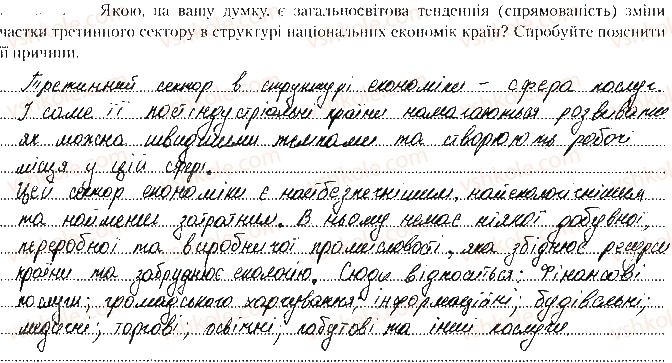 Якою, на вашу думку, є загальносвітова тенденція (спрямованість) зміни
частки третинного сектору в структурі національних економік країн? Спробуйте пояснити
її причини.
Третинний сектор в структурі економіки – сфера послуг.
І саме її постіндустріальні країни намагаються розвивати
як можна швидшими темпами та створюють робочі
місця у цій сфері.
Цей сектор економіки є найбезпечнішим, найекологічнішим
та найменш затратним. В ньому немає ніякої добувної,
переробної та виробничої промисловості, яка збіднює ресурси
країни та забруднює екологію. Сюди відноситься: Фінансові
послуги; громадського харчування, інформаційні; будівельні;
медичні; торгові; освітні; побутові та інші послуги